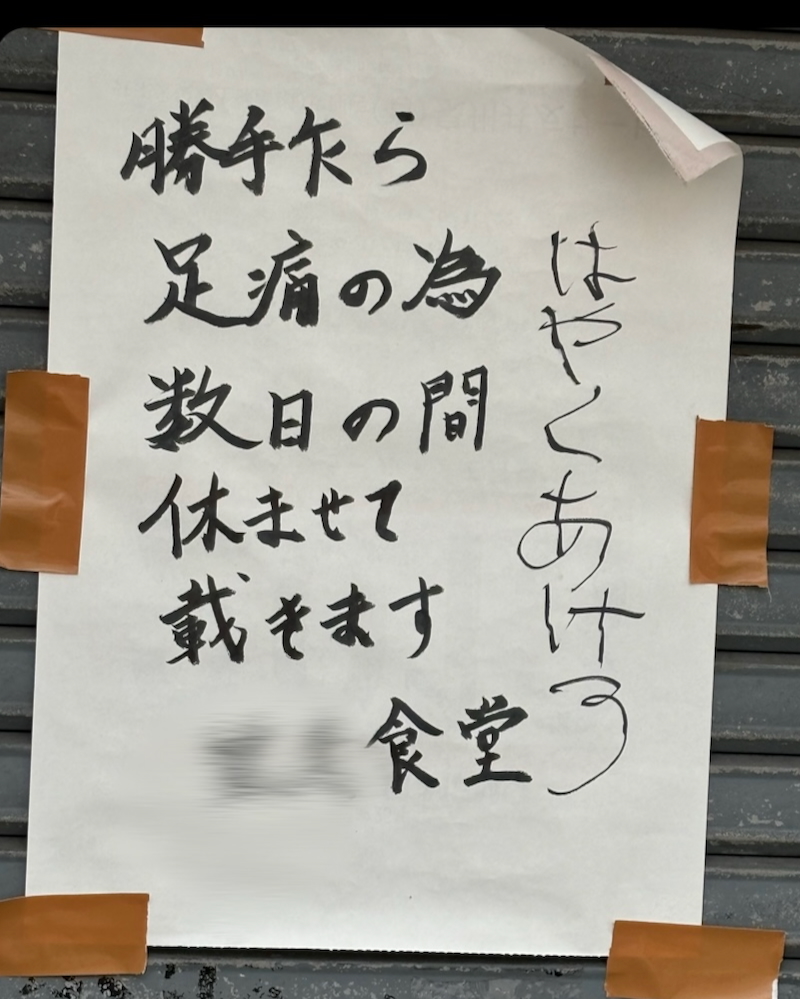 勝手乍ら
足痛の為
数日の間
休ませて
載きます
食堂
はやくあけろ